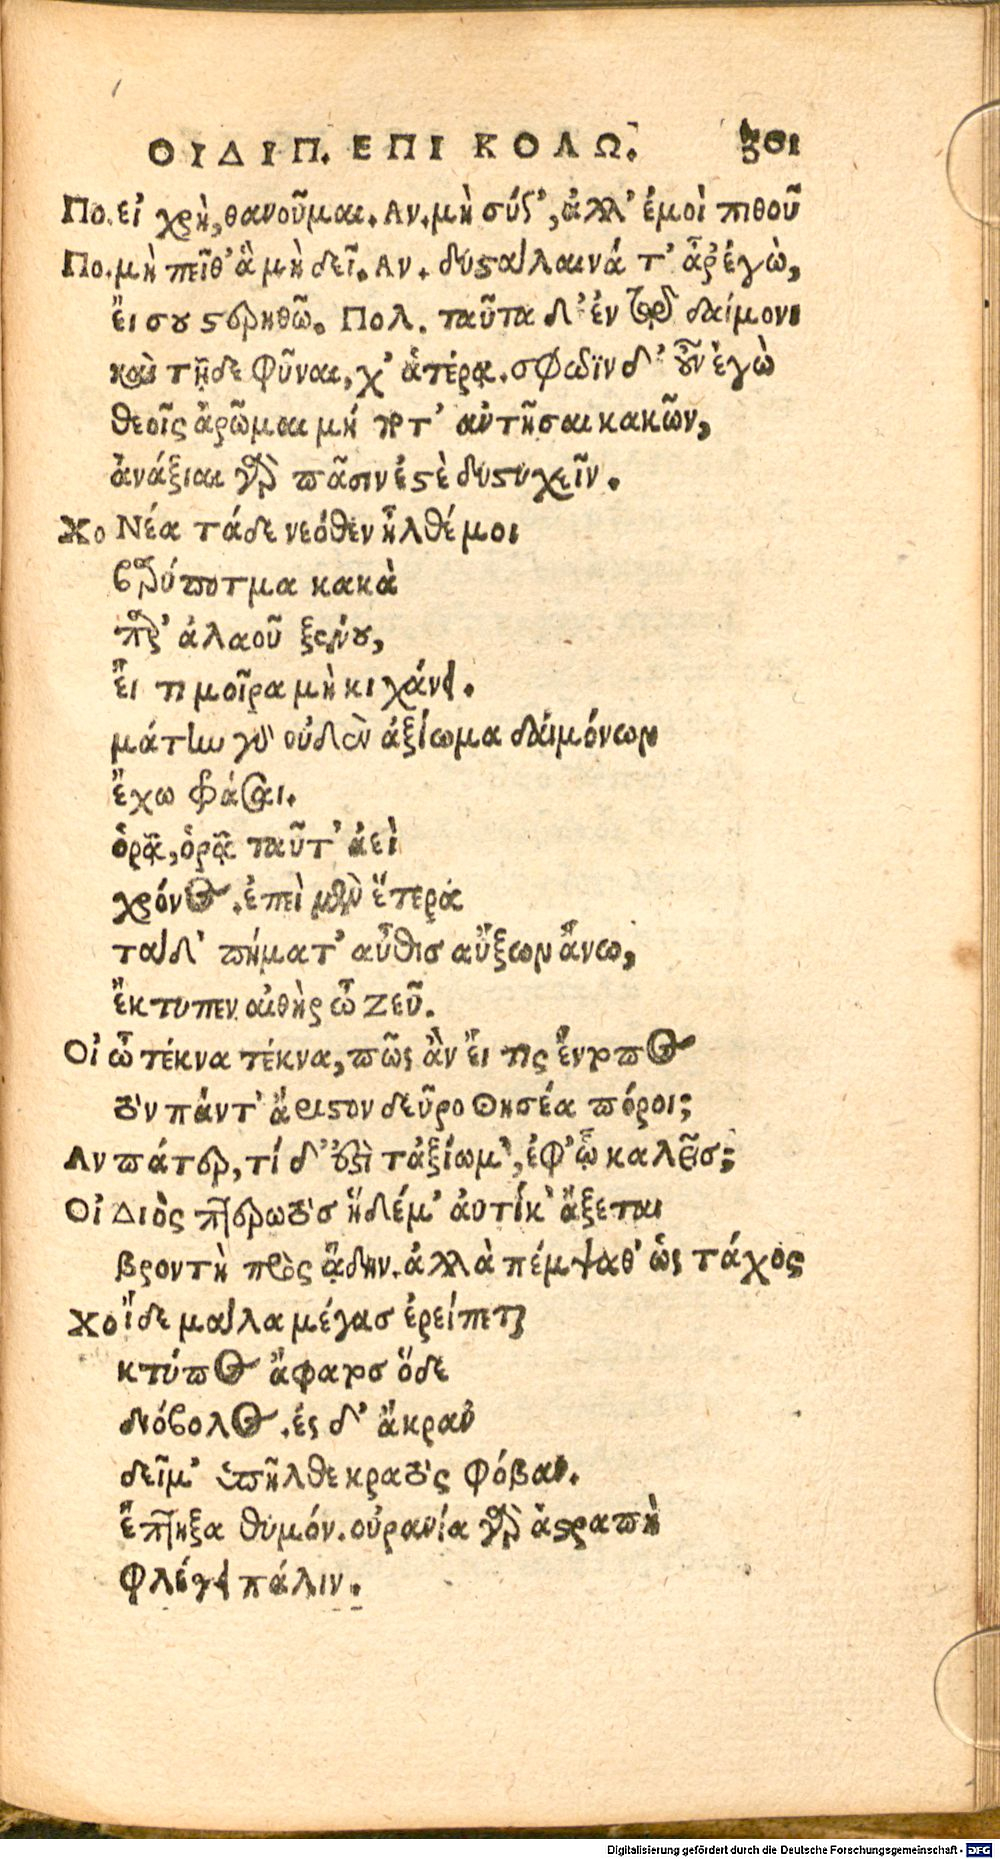 ΟΙΔΙΠ. ΕΠΙ ΚΟΛΩ.
Πο. εἰ χρὴ, θανοῦμαι. Αν. μὴ σύγ', ἀλλ' ἐμοὶ πιθοῦ
Πο. μὴ πεῖθ' ἃ μὴ δεῖ. Αν. δυσταλαινά τ' ἆρ' ἐγὼ,
εἴ σου στερηθῶ. Πολ. ταῦτα δ' ἐν τῷ δαίμονι
καὶ τῇδε φῦναι, χ' ἀτέρᾳ. σφῶϊν δ' οὖν ἐγὼ
θεοῖς ἀρῶμαι μή ποτ' αὐτῆσαι κακῶν,
ἀνάξιαι γὰρ πᾶσιν ἐστὲ δυστυχεῖν.
Χο Νέα τάδε νεόθεν ἦλθέ μοι
βαρύποτμα κακὰ
παρ' ἀλαοῦ ξένου,
εἴ τι μοῖρα μὴ κιχάνει.
μάτην γὰρ οὐδὲν ἀξίωμα δαιμόνων
ἔχω φράσαι.
ὁρᾷ, ὁρᾷ ταῦτ' ἀεὶ
χρόνος. ἐπεὶ μὲν ἕτερα
τάδ' πήματ' αὖθισ αὔξων ἄνω,
ἔκτυπεν αἰθὴρ ὦ Ζεῦ.
Οἰ ὦ τέκνα τέκνα, πῶς ἂν εἴ τις ἔντοπος
τὸν πάντ' ἄριστον δεῦρο Θησέα πόροι;
Αν πάτερ, τί δ' ἐστὶ τἀξίωμ', ἐφ' ᾧ καλεῖσ;
Οἰ Διὸς πτερωτὸσ ἥδέ μ' ἀυτίκ' ἄξεται
βροντὴ πρὸς ᾅδην. ἀλλὰ πέμψαθ' ὡς τάχος
Χο ἴδε μάλα μέγασ ἐρείπεται
κτύπος ἄφατοσ ὅδε
διόβολος. ἐς δ' ἄκραν
δεῖμ' ὑπῆλθε κρατὸς φόβαν.
ἔπτηξα θυμόν. οὐρανία γὰρ ἀστραπὴ
φλέγει πάλιν.
Digitalisierung gefördert durch die Deutsche Forschungsgemeinschaft - DFG